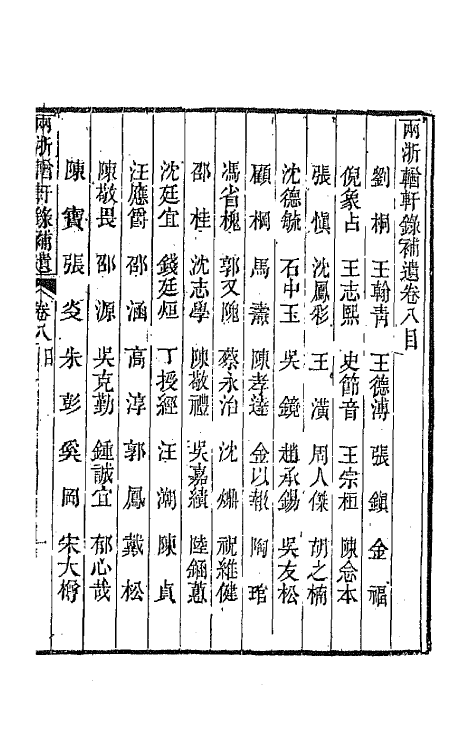 兩浙輶軒錄補遺卷八目
劉桐 王翰青 王德溥 張鎮 金福
倪象占 王志熙 史節音 王宗桓 陳念本
張愼 沈鳳彩 王潢 周人傑 胡之楠
沈德毓 石中玉 吳鏡 趙承錫 吳友松
顧棡 馬肅 陳孝逵 金以報 陶琯
馮省槐 郭又隗 蔡永治 沈爍 祝維健
邵桂 沈志學 陳敬禮 吳嘉績 陸錮蕙
沈廷宜 錢廷烜 丁授經 汪湖 陳貞
汪應爵 邵涵 高淳 郭鳳 戴松
陳敬畏 邵源 吳克勤 鍾誠宜 郁心哉
陳寶 張炎 朱彭 奚岡 宋大樽
兩浙輶軒錄補遺 卷八目 一